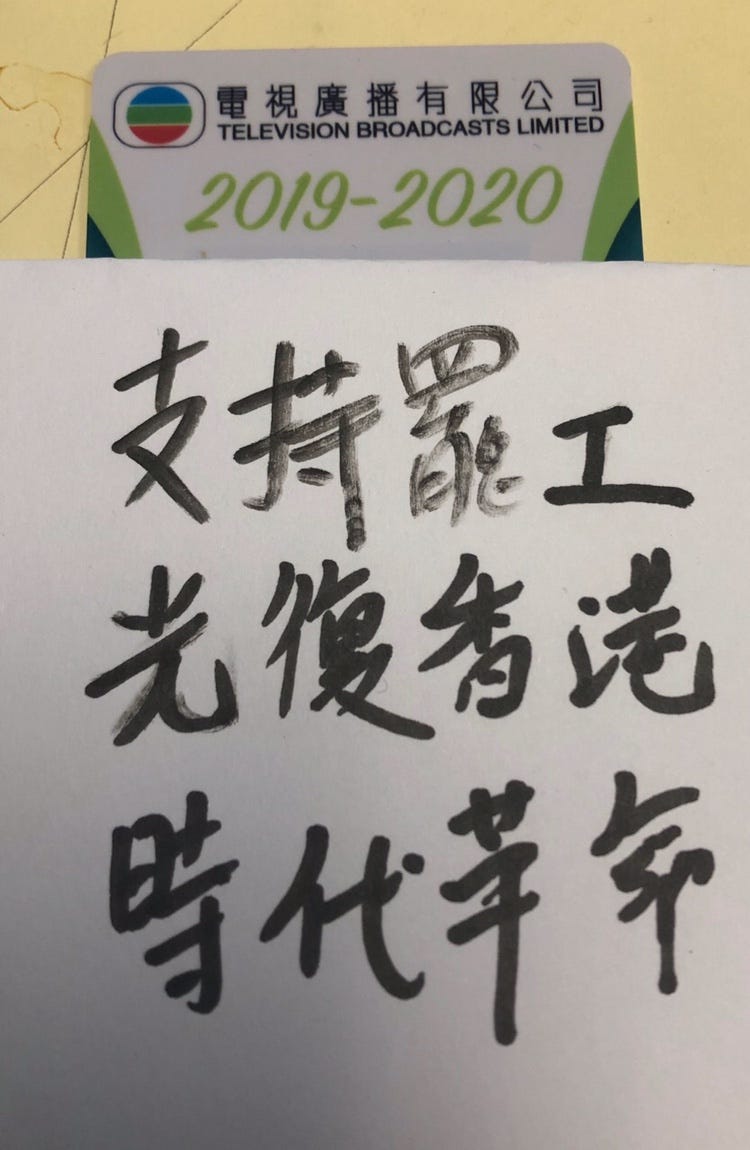 電視廣播有限公司
TELEVISION BROADCASTS LIMITED
2019-2020
支持罷工
光復香港
時代革命